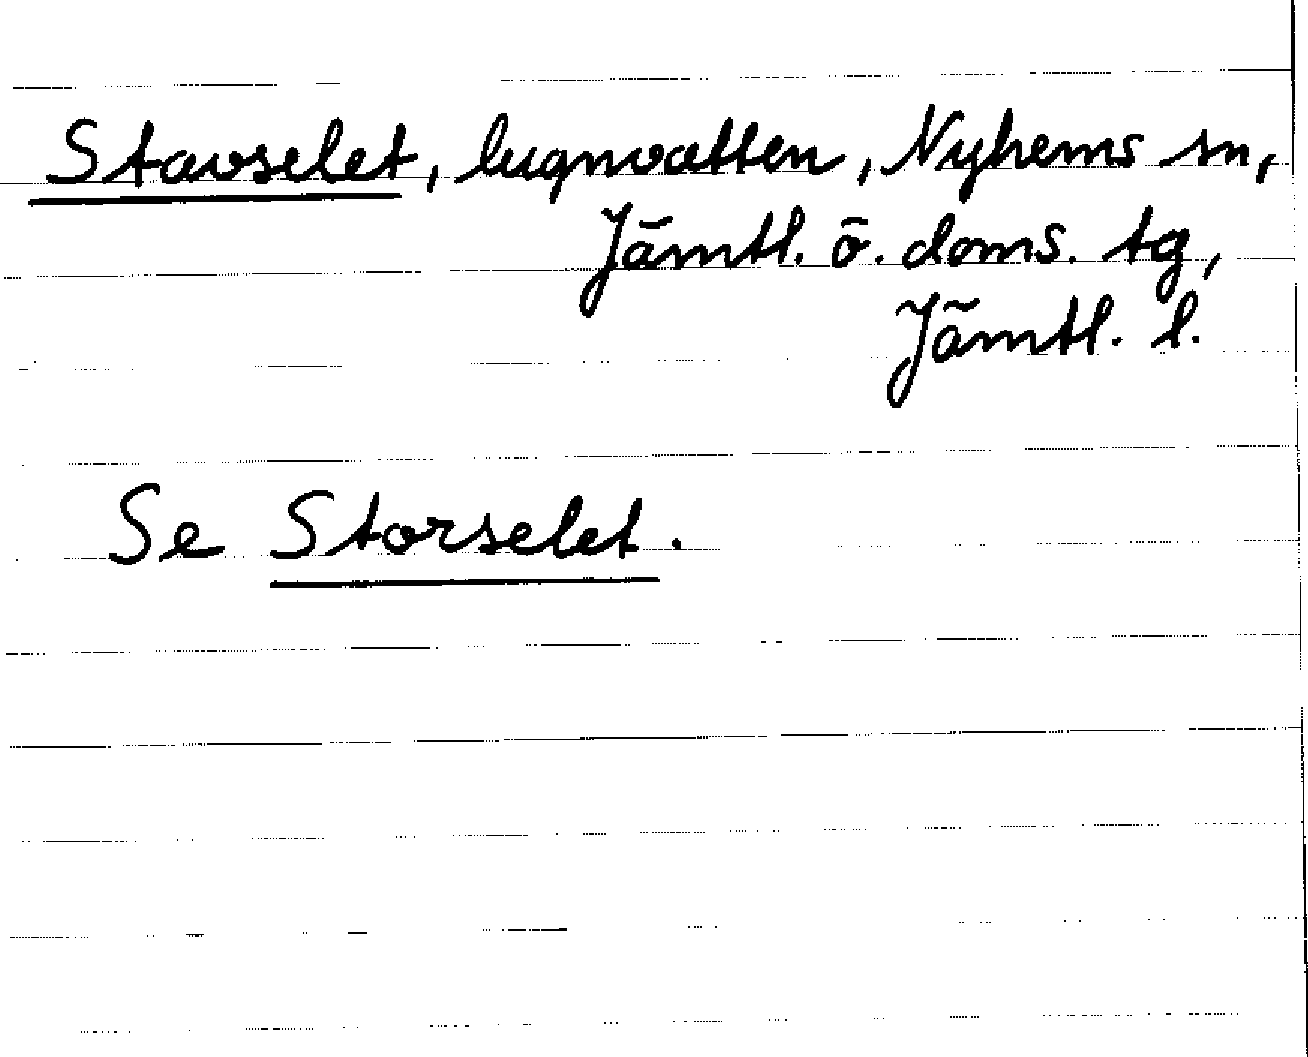 Stavselet, lugnvatten, Nyhems sn,
Jämtl. ö. doms. tg,
Jämtl. l.
Se Storselet.